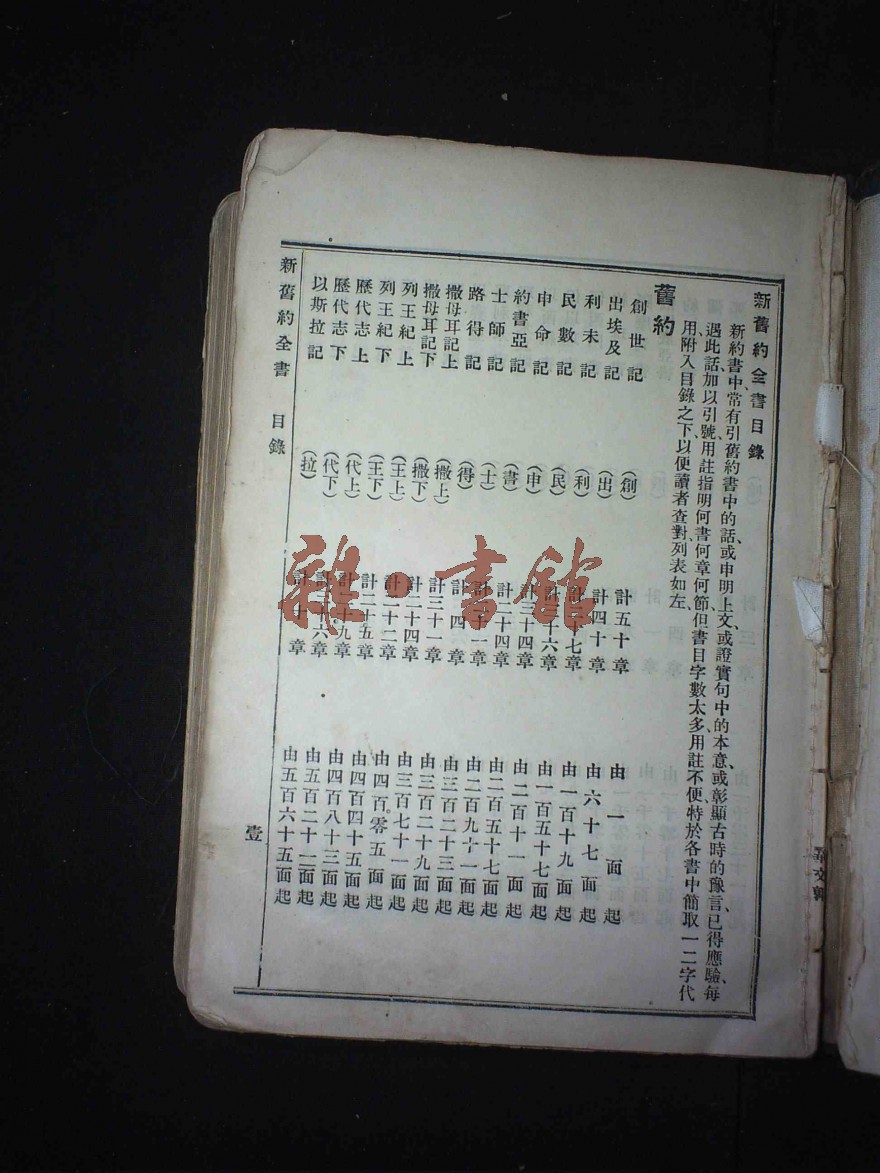 新舊約全書目錄
新約書中、常有引舊約書中的話、或申明上文、或證實句中的本意、或彰顯古時的豫言、已得應驗、每
遇此話、加以引號、用註指明何書何章何節、但書目字數太多、用註不便、特於各書中、簡取一二字、代
用、附入目錄之下、以便讀者查對、列表如左、
舊約
創世記 (創) 計五十章 由一面起
出埃及記 (出) 計四十章 由六十七面起
利未記 (利) 計二十七章 由一百十九面起
民數記 (民) 計三十六章 由一百五十七面起
申命記 (申) 計三十四章 由二百十一面起
約書亞記 (書) 計二十四章 由二百五十七面起
士師記 (士) 計二十一章 由二百九十一面起
路得記 (得) 計四章 由三百二十三面起
撒母耳記上 (撒上) 計三十一章 由三百二十九面起
撒母耳記下 (撒下) 計二十四章 由三百七十一面起
列王紀上 (王上) 計二十二章 由四百零五面起
列王紀下 (王下) 計二十五章 由四百四十五面起
歷代志上 (代上) 計二十九章 由四百八十三面起
歷代志下 (代下) 計三十六章 由五百二十一面起
以斯拉記 (拉) 計十章 由五百六十五面起
新舊約全書 目錄
壹
雜·書館